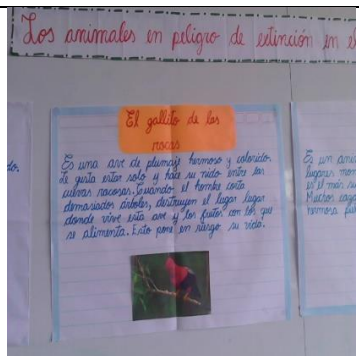 Los animales en peligro de extinción en e
El gallito de las
rocas
Es una ave de plumaje hermoso y colorido.
Le gusta estar solo y hace su nido entre las
cuevas rocosas. Cuando el hombre corta
demasiados árboles, destruyen el lugar lugar
donde vive esta ave y los frutos con los que
se alimenta. Esto pone en riesgo su vida.
do.
Es un ani
lugares mon
es el más
Muchos caza
hermosa